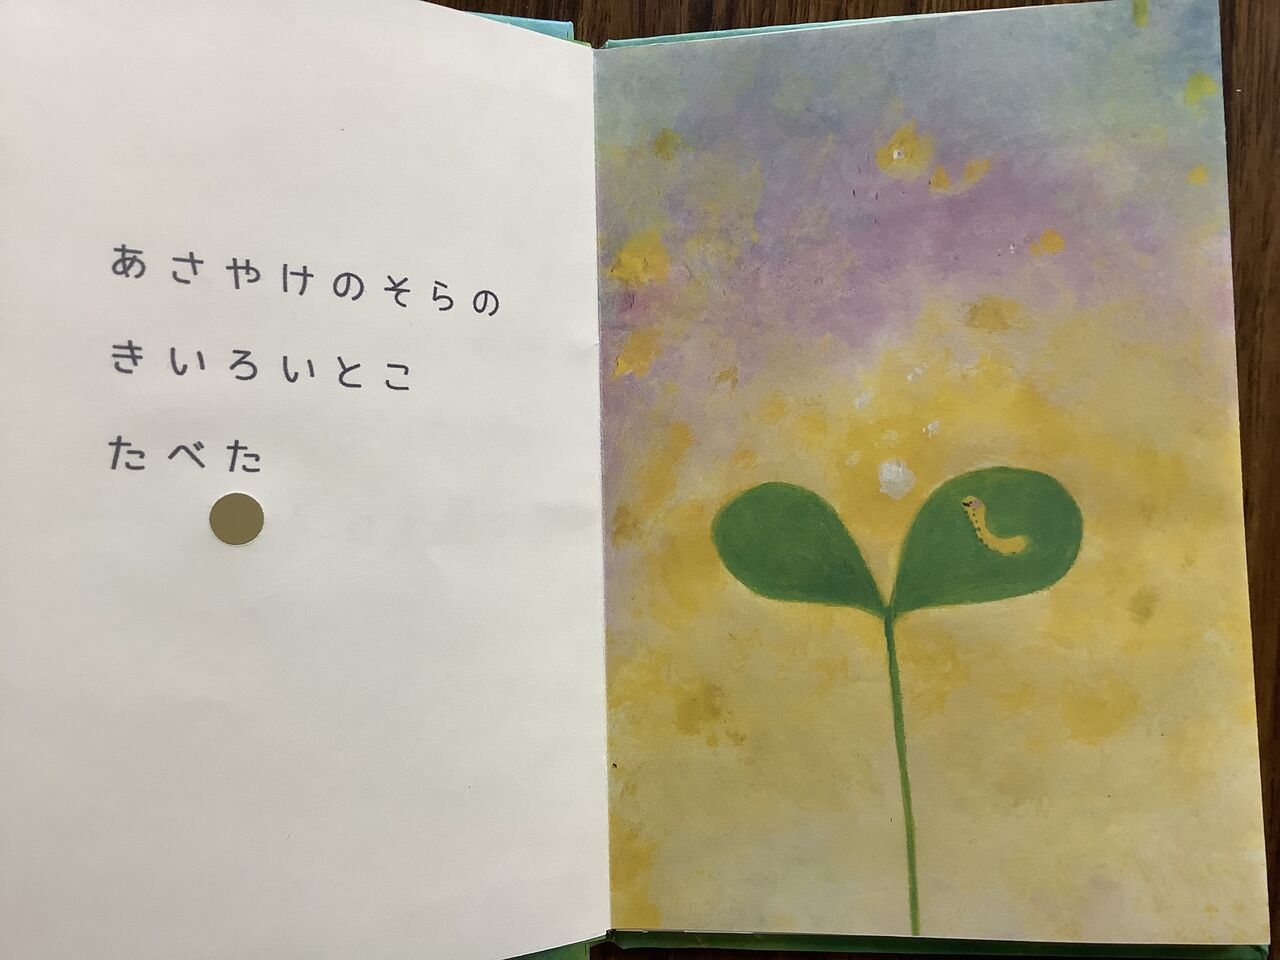 あさやけのそらの
きいろいとこ
たべた